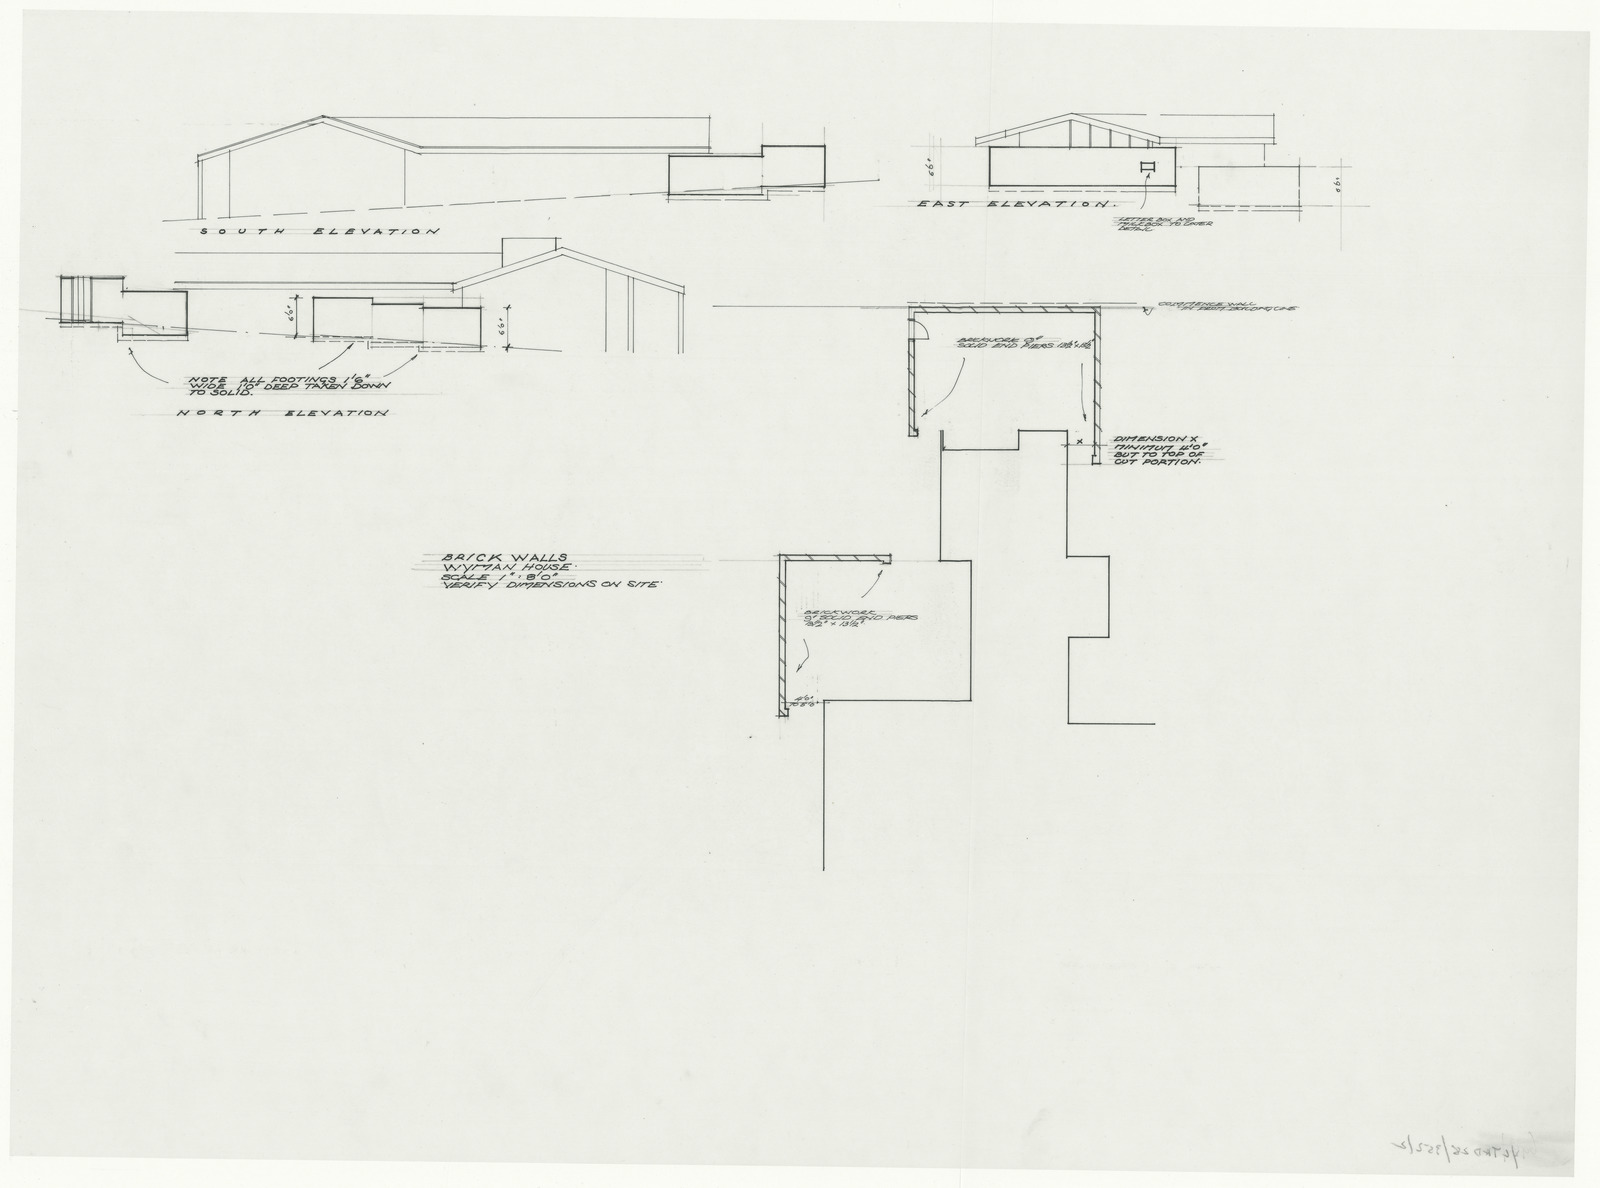 SOUTH ELEVATION
6'6"
6'6"
EAST ELEVATION.
LETTER BOX AND
MILK BOX TO LATER
DETAIL
6'6"
6'6"
NOTE ALL FOOTINGS 1'6"
WIDE 1'0" DEEP TAKEN DOWN
TO SOLID.
NORTH ELEVATION
COMMENCE WALL
IN FROM BUILDING LINE
BRICKWORK 9"
SOLID END PIERS 13½" x 13½"
X
DIMENSION X
MINIMUM 4'0"
BUT TO TOP OF
CUT PORTION.
BRICK WALLS
WYMAN HOUSE.
SCALE 1" : 8'0"
VERIFY DIMENSIONS ON SITE
BRICKWORK
9" SOLID END PIERS
13½" x 13½"
4'0"